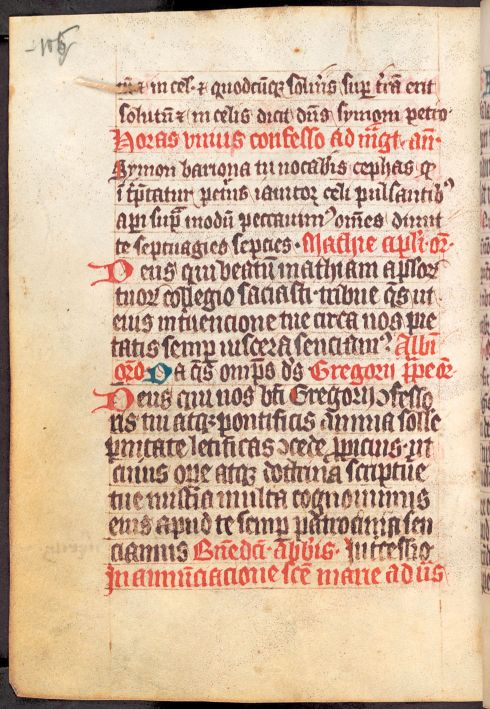 et in cel. et quodcumq; solũis sup trã erit
solutũ et in celis dicit dñs symoni petro.
Horas unius confesso ad mgt. an.
Symon bariona tu vocabis cephas q
ĩtptatur petrus ianitor celi pulsantib9
api sup modũ peccauim9 omĩes dimit
te septuagies septies. Mathie apli or.
Deus qui beatũ mathiam apłor
tuor collegio sociasti. tribue q̃s ut
eius intuencione tue circa nos pie
tatis semp uiscera senciam9 Albĩ
ꝯ Da q̃s omps ds Gregorii ppe or
Deus qui nos bti Gregorii ꝯfesso
ris tui atq; pontificis ãnnua solle
pnitate letificas ꝯcede ppicius. ut
cuius ope atq; doctrina scriptũe
tue multa cognouimus
eius apud te semp patrocinia sen
ciamus Bñedci. abbis. Intcessio
In annũciacione sce marie ad us